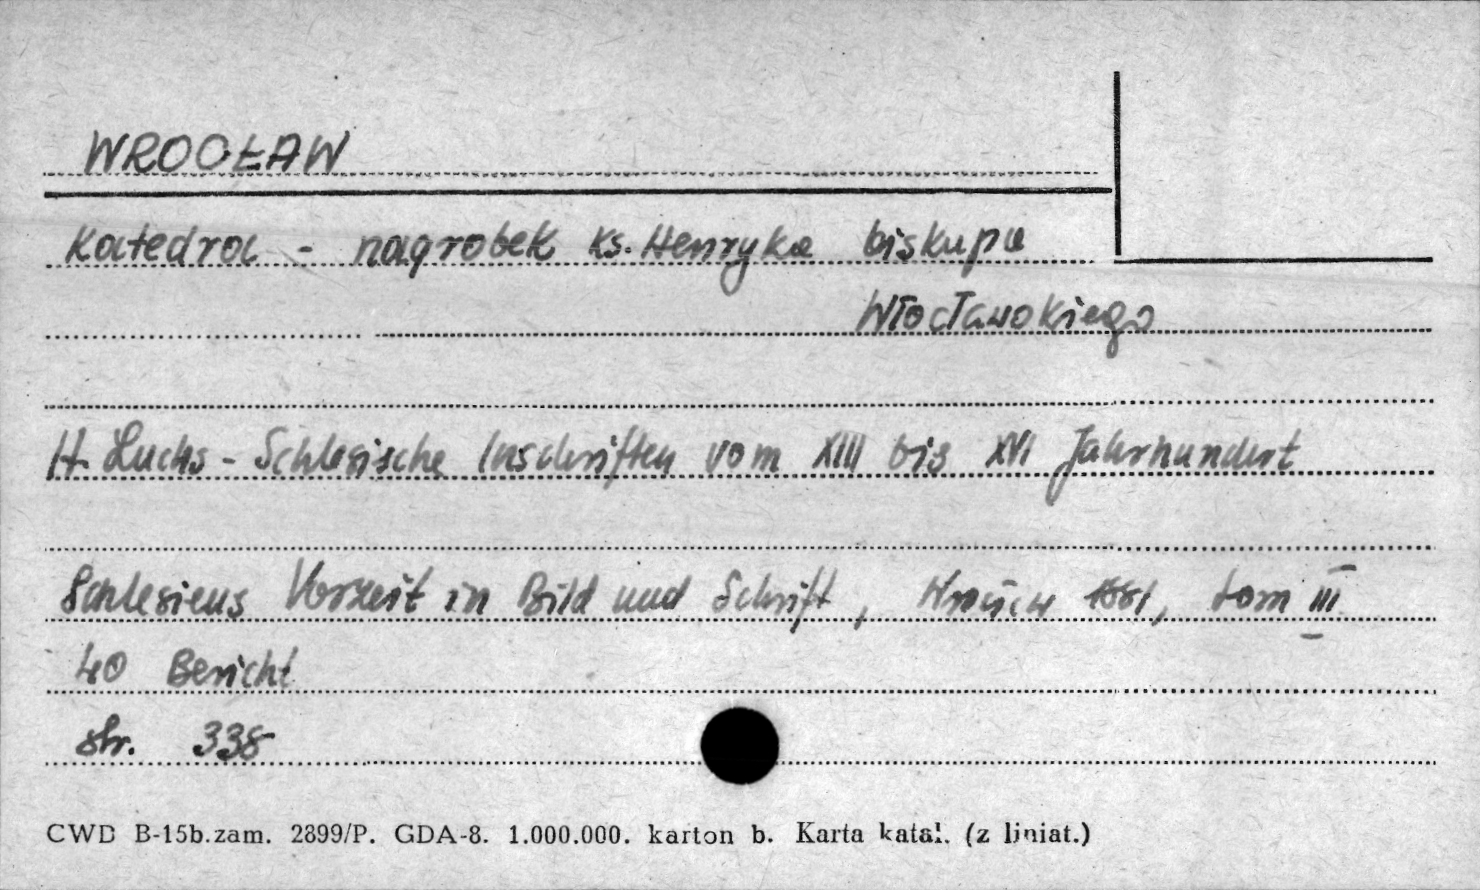 WROCŁAW
Katedra - nagrobek ks. Henryka biskupa
Włocławskiego
H. Luchs - Schlesische Inschriften vom XIII bis XVI Jahrhundert
Schlesiens Vorzeit in Bild und Schrift, 1881, tom III
40 Bericht
str. 338
CWD B-15b.zam. 2899/P. GDA-8. 1.000.000. karton b. Karta katal. (z liniat.)